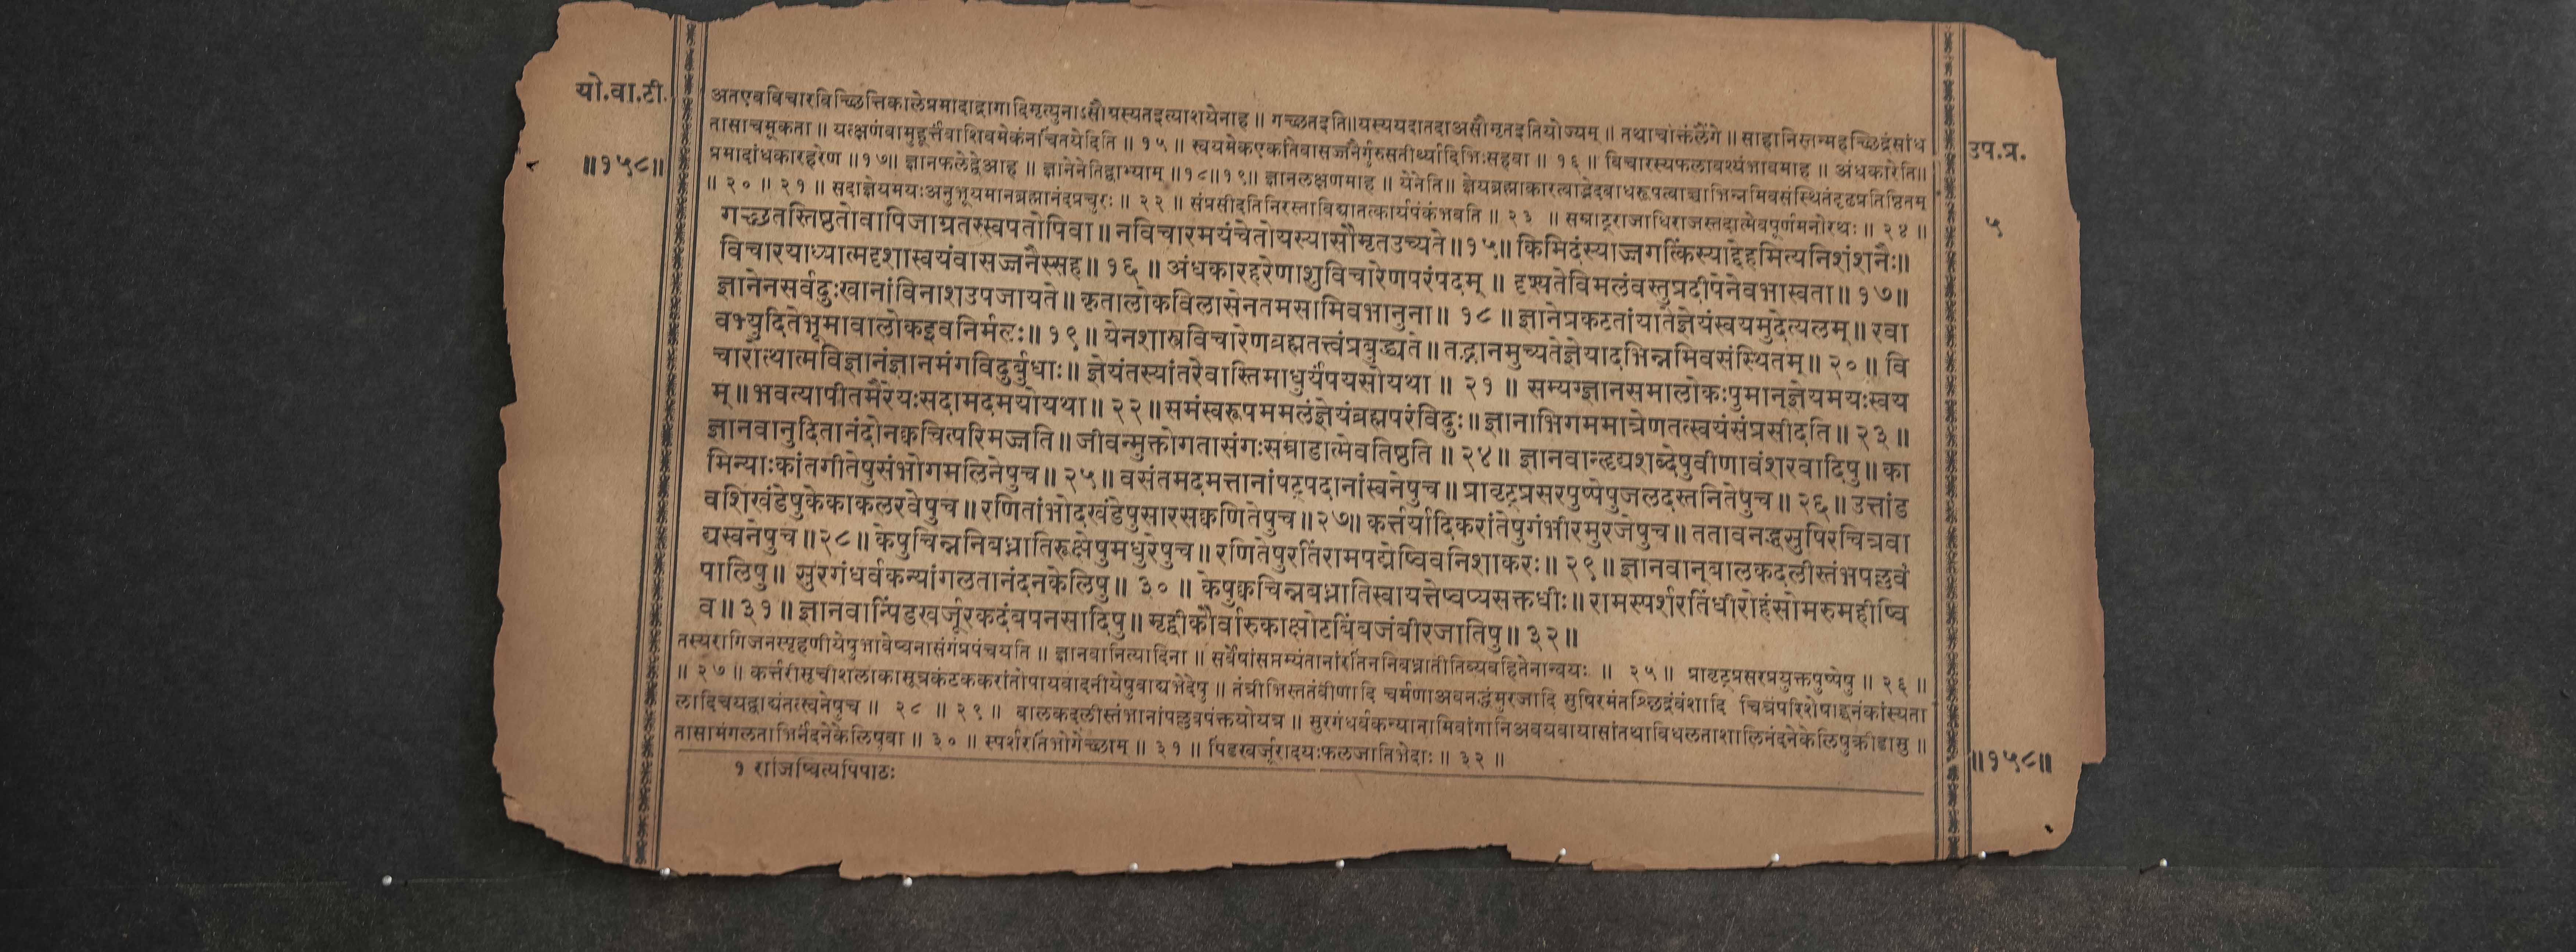 यो.वा.टी.
॥१५८॥
अतएवविचारविच्छित्तिकालेप्रमादाद्रागादिमृत्युनाऽसौग्रस्यतइत्याशयेनाह ॥ गच्छतइति॥यस्ययदातदाअसौमृतइतियोज्यम् ॥ तथाचोक्तंलैंगे ॥ साहानिस्तन्महच्छिद्रंसांध
तासाचमूकता ॥ यत्क्षणंवामुहूर्त्तंवाशिवमेकंनचिंतयेदिति ॥ १५ ॥ स्वयमेकएकतिवासज्जनैर्गुरुसतीर्थ्यादिभिःसहवा ॥ १६ ॥ विचारस्यफलावश्यंभावमाह ॥ अंधकारेति॥
प्रमादांधकारहरेण ॥१७॥ ज्ञानफलेद्वेआह ॥ ज्ञानेनेतिद्वाभ्याम् ॥१८॥१९॥ ज्ञानलक्षणमाह ॥ येनेति॥ ज्ञेयब्रह्माकारत्वाद्भेदबाधरूपत्वाच्चाभिन्नमिवसंस्थितंदृढप्रतिष्ठितम्
॥ २० ॥ २१ ॥ सदाज्ञेयमयःअनुभूयमानब्रह्मानंदप्रचुरः ॥ २२ ॥ संप्रसीदतिनिरस्ताविद्यातत्कार्यपंकंभवति ॥ २३ ॥ सम्राट्राजाधिराजस्तदात्मेवपूर्णमनोरथः ॥ २४ ॥
गच्छतस्तिष्ठतोवापिजाग्रतस्स्वपतोपिवा ॥ नविचारमयंचेतोयस्यासौमृतउच्यते॥१५॥ किमिदंस्याज्जगत्किंस्याद्देहमित्यनिशंशनैः॥
विचारयाध्यात्मदृशास्वयंवासज्जनैस्सह॥ १६ ॥ अंधकारहरेणाशुविचारेणपरंपदम् ॥ दृश्यतेविमलंवस्तुप्रदीपेनेवभास्वता॥ १७॥
ज्ञानेनसर्वदुःखानांविनाशउपजायते॥ कृतालोकविलासेनतमसामिवभानुना॥ १८ ॥ ज्ञानेप्रकटतांयातेज्ञेयंस्वयमुदेत्यलम्॥ रवा
वभ्युदितेभूमावालोकइवनिर्मलः॥ १९॥ येनशास्त्रविचारेणब्रह्मतत्त्वंप्रबुद्ध्यते॥ तज्ज्ञानमुच्यतेज्ञेयादभिन्नमिवसंस्थितम्॥ २०॥ वि
चारोत्थात्मविज्ञानंज्ञानमंगविदुर्बुधाः॥ ज्ञेयंतस्यांतरेवास्तिमाधुर्यंपयसोयथा ॥ २१ ॥ सम्यग्ज्ञानसमालोकःपुमान्ज्ञेयमयःस्वय
म्॥ भवत्यापीतमैरेयःसदामदमयोयथा॥ २२॥ समंस्वरूपममलंज्ञेयंब्रह्मपरंविदुः॥ ज्ञानाभिगममात्रेणतत्स्वयंसंप्रसीदति॥ २३॥
ज्ञानवानुदितानंदोनक्वचित्परिमज्जति॥ जीवन्मुक्तोगतासंगःसम्राडात्मेवतिष्ठति ॥ २४॥ ज्ञानवान्हृद्यशब्देषुवीणावंशरवादिषु॥ का
मिन्याःकांतगीतेषुसंभोगमलिनेषुच॥ २५॥ वसंतमदमत्तानांषट्पदानांस्वनेषुच॥ प्रावृट्प्रसरपुष्पेषुजलदस्तनितेषुच॥ २६॥ उत्तांड
वशिखंडेषुकेकाकलरवेषुच॥ रणितांभोदखंडेषुसारसक्वणितेषुच॥२७॥ कर्त्तर्यादिकरांतेषुगंभीरमुरजेषुच॥ ततावनद्धसुषिरचित्रवा
द्यस्वनेषुच॥२८॥ केषुचिन्ननिबध्नातिरूक्षेषुमधुरेषुच॥ रणितेषुरतिंरामपद्मेष्विवनिशाकरः॥ २९॥ ज्ञानवान्बालकदलीस्तंभपल्लवं
पालिषु॥ सुरगंधर्वकन्यांगलतानंदनकेलिषु॥ ३० ॥ केषुक्वचिन्नबध्नातिस्वायत्तेष्वप्यसक्तधीः॥ रामस्पर्शरतिंधीरोहंसोमरुमहीष्वि
व॥ ३१॥ ज्ञानवान्पिंडखर्जूरकदंबपनसादिषु॥ मृद्वीकोर्वारुकाक्षोटबिंबजंबीरजातिषु॥ ३२॥
तस्यरागिजनस्पृहणीयेषुभावेष्वनासंगंप्रपंचयति ॥ ज्ञानवानित्यादिना ॥ सर्वेषांसप्तम्यंतानांरतिंननिबध्नातीतिव्यवहितेनान्वयः ॥ २५॥ प्रावृट्प्रसरप्रयुक्तपुष्पेषु ॥ २६॥
॥ २७ ॥ कर्त्तरीसूचीशलाकासूत्रकंटककरांतोपायवादनीयेषुवाद्यभेदेषु ॥ तंत्रीभिस्ततंवीणादि चर्मणाअवनद्धंमुरजादि सुषिरमंतश्छिद्रंवंशादि चित्रंपरिशेषाद्धनंकांस्यता
लादिचयद्वाद्यंतत्स्वनेषुच ॥ २८ ॥ २९ ॥ बालकदलीस्तंभानांपल्लवपंक्तयोयत्र ॥ सुरगंधर्वकन्यानामिवांगानिअवयवायासांतथाविधलताशालिनंदनेकेलिषुक्रीडासु ॥
तासामंगलताभिर्नंदनेकेलिषुवा ॥ ३० ॥ स्पर्शरतिंभोगेच्छाम् ॥ ३१ ॥ पिंडखर्जूरादयःफलजातिभेदाः ॥ ३२ ॥
१ राजिष्वित्यपिपाठः
उप.प्र.
५
॥१५८॥